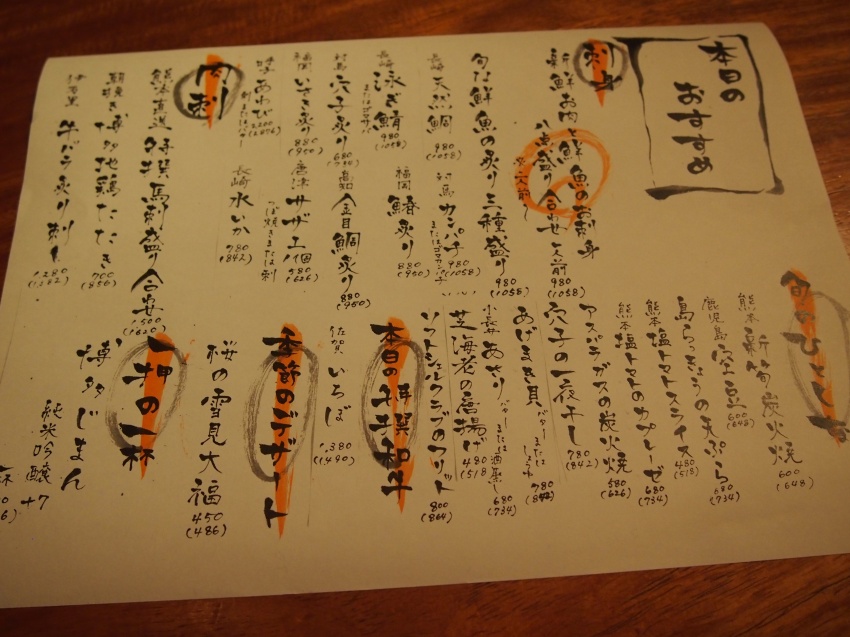 本日の
おすすめ
刺身
新鮮お肉と鮮魚のお刺身
八点盛り合わせ 一人前 980
(1058)
二人前〜
旬な鮮魚の炙り三種盛り 980
(1058)
長崎 天然鯛 980
(1058)
対馬 カンパチ 980
(1058)
またはゴマカンパチ
長崎 泳ぎ鯖 980
(1058)
またはゴマサバ
福岡 鰆炙り 880
(950)
対馬 穴子炙り 680
高知 金目鯛炙り 880
(950)
福岡 いさき炙り 880
(950)
唐津 サザエ 1個 580
(626)
つぼ焼きまたは刺
あわび 2200
長崎 水いか 780
(842)
肉刺
熊本直送 特撰馬刺し盛り合わせ 1500
(1620)
朝挽き博多地鶏たたき
牛バラ炙り刺し 1280
旬のひとしな
熊本 新筍炭火焼 600
(648)
鹿児島 空豆 600
(648)
島らっきょうの天ぷら 680
(734)
熊本 塩トマトスライス 480
(518)
熊本 塩トマトのカプレーゼ 680
(734)
アスパラガスの炭火焼 580
(626)
穴子の一夜干し 780
(842)
あげまき貝 バターまたはしょうゆ 780
(842)
あさり バターまたは酒蒸し 680
(734)
芝海老の唐揚げ 480
(518)
ソフトシェルクラブのフリット 800
(864)
本日の特撰和牛
佐賀 いちぼ 1,380
(1,490)
季節のデザート
桜の雪見大福 450
(486)
一押の一杯
博多じまん
純米吟醸